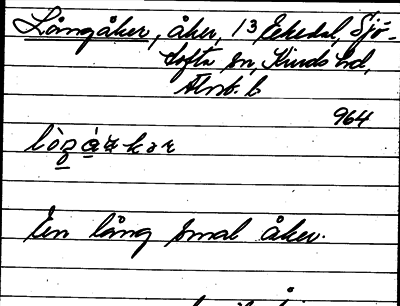 Långåker, åker, 13 Ekedal, Sjö-
tofta sn, Kinds hd,
Älvsb. l
964
En lång smal åker.